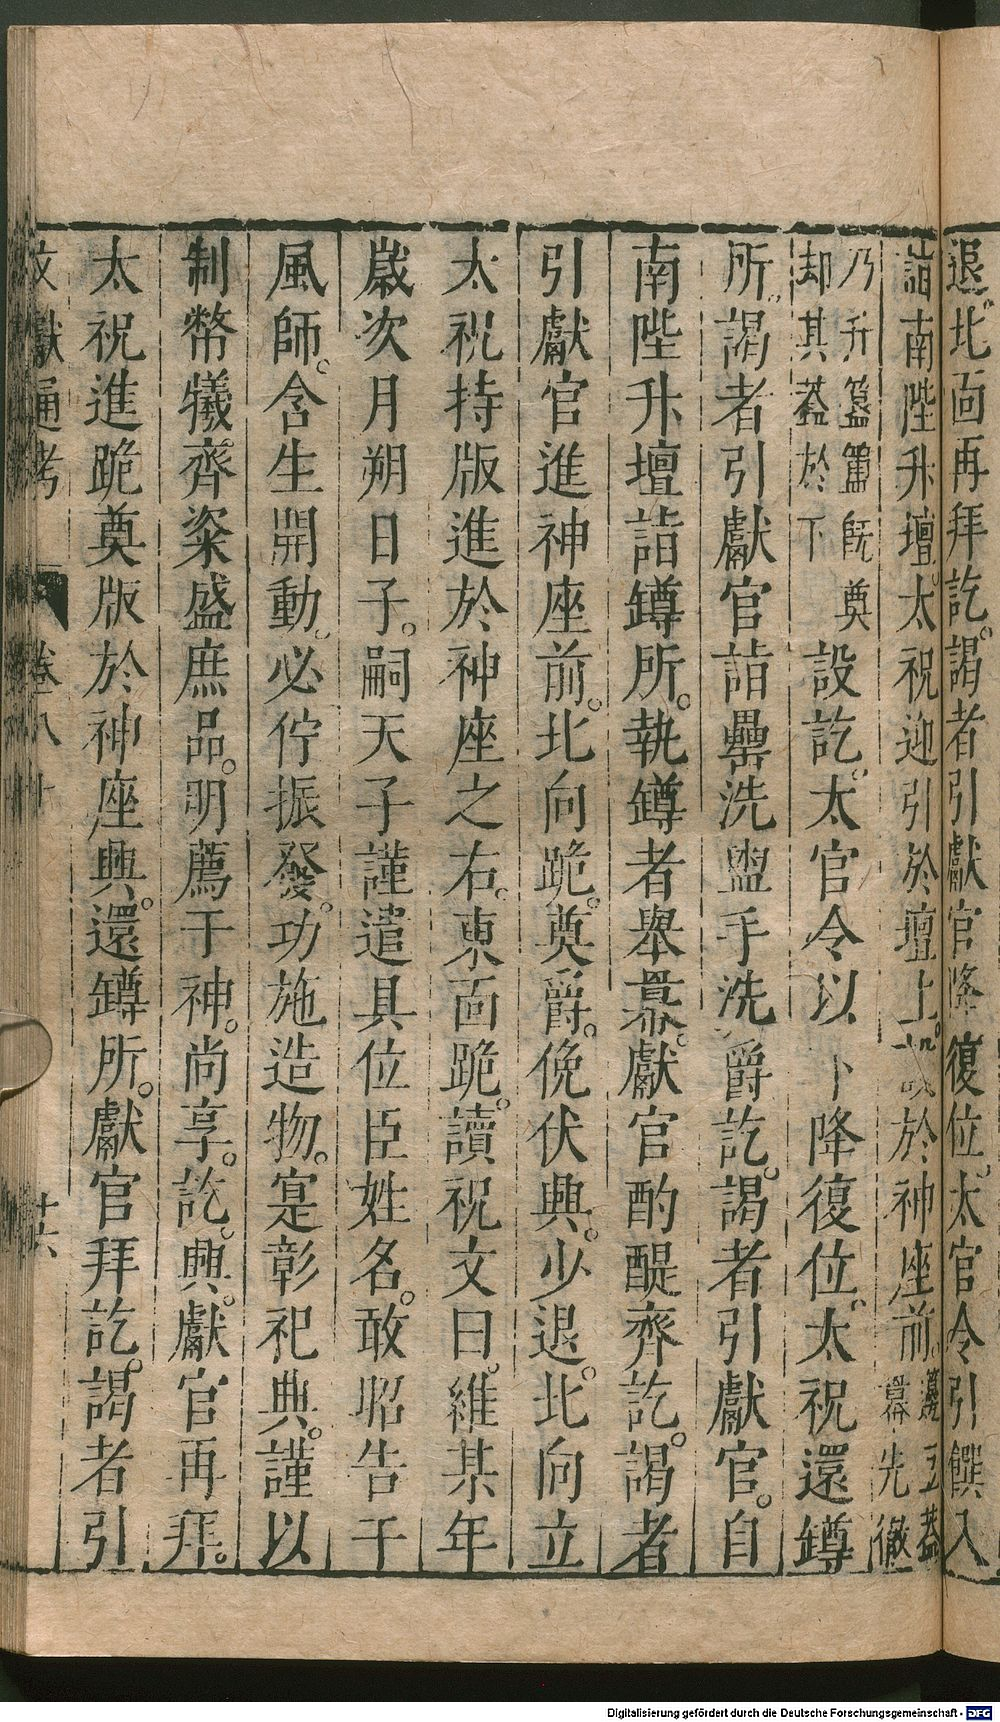 退。北面再拜訖。謁者引獻官降復位。太官令引饌入
詣南陛升壇。太祝迎引於壇上。設於神座前。籩豆蓋
冪先徹
乃升簋簠既奠
却其蓋於下
設訖。太官令以下降復位。太祝還罇
所。謁者引獻官詣罍洗盥手洗爵訖。謁者引獻官。自
南陛升壇詣罇所。執罇者舉冪。獻官酌醍齊訖。謁者
引獻官進神座前。北向跪。奠爵。俛伏興。少退。北向立
太祝持版進於神座之右。東面跪。讀祝文曰。維某年
歲次月朔日子。嗣天子謹遣具位臣姓名。敢昭告于
風師。含生開動。必佇振發。功施造物。寔彰祀典。謹以
制幣犧齊粢盛庶品。明薦于神。尚享。訖。興。獻官再拜。
太祝進跪奠版於神座興。還罇所。獻官拜訖。謁者引
文獻通考 卷八十 十六
Digitalisierung gefördert durch die Deutsche Forschungsgemeinschaft - DFG